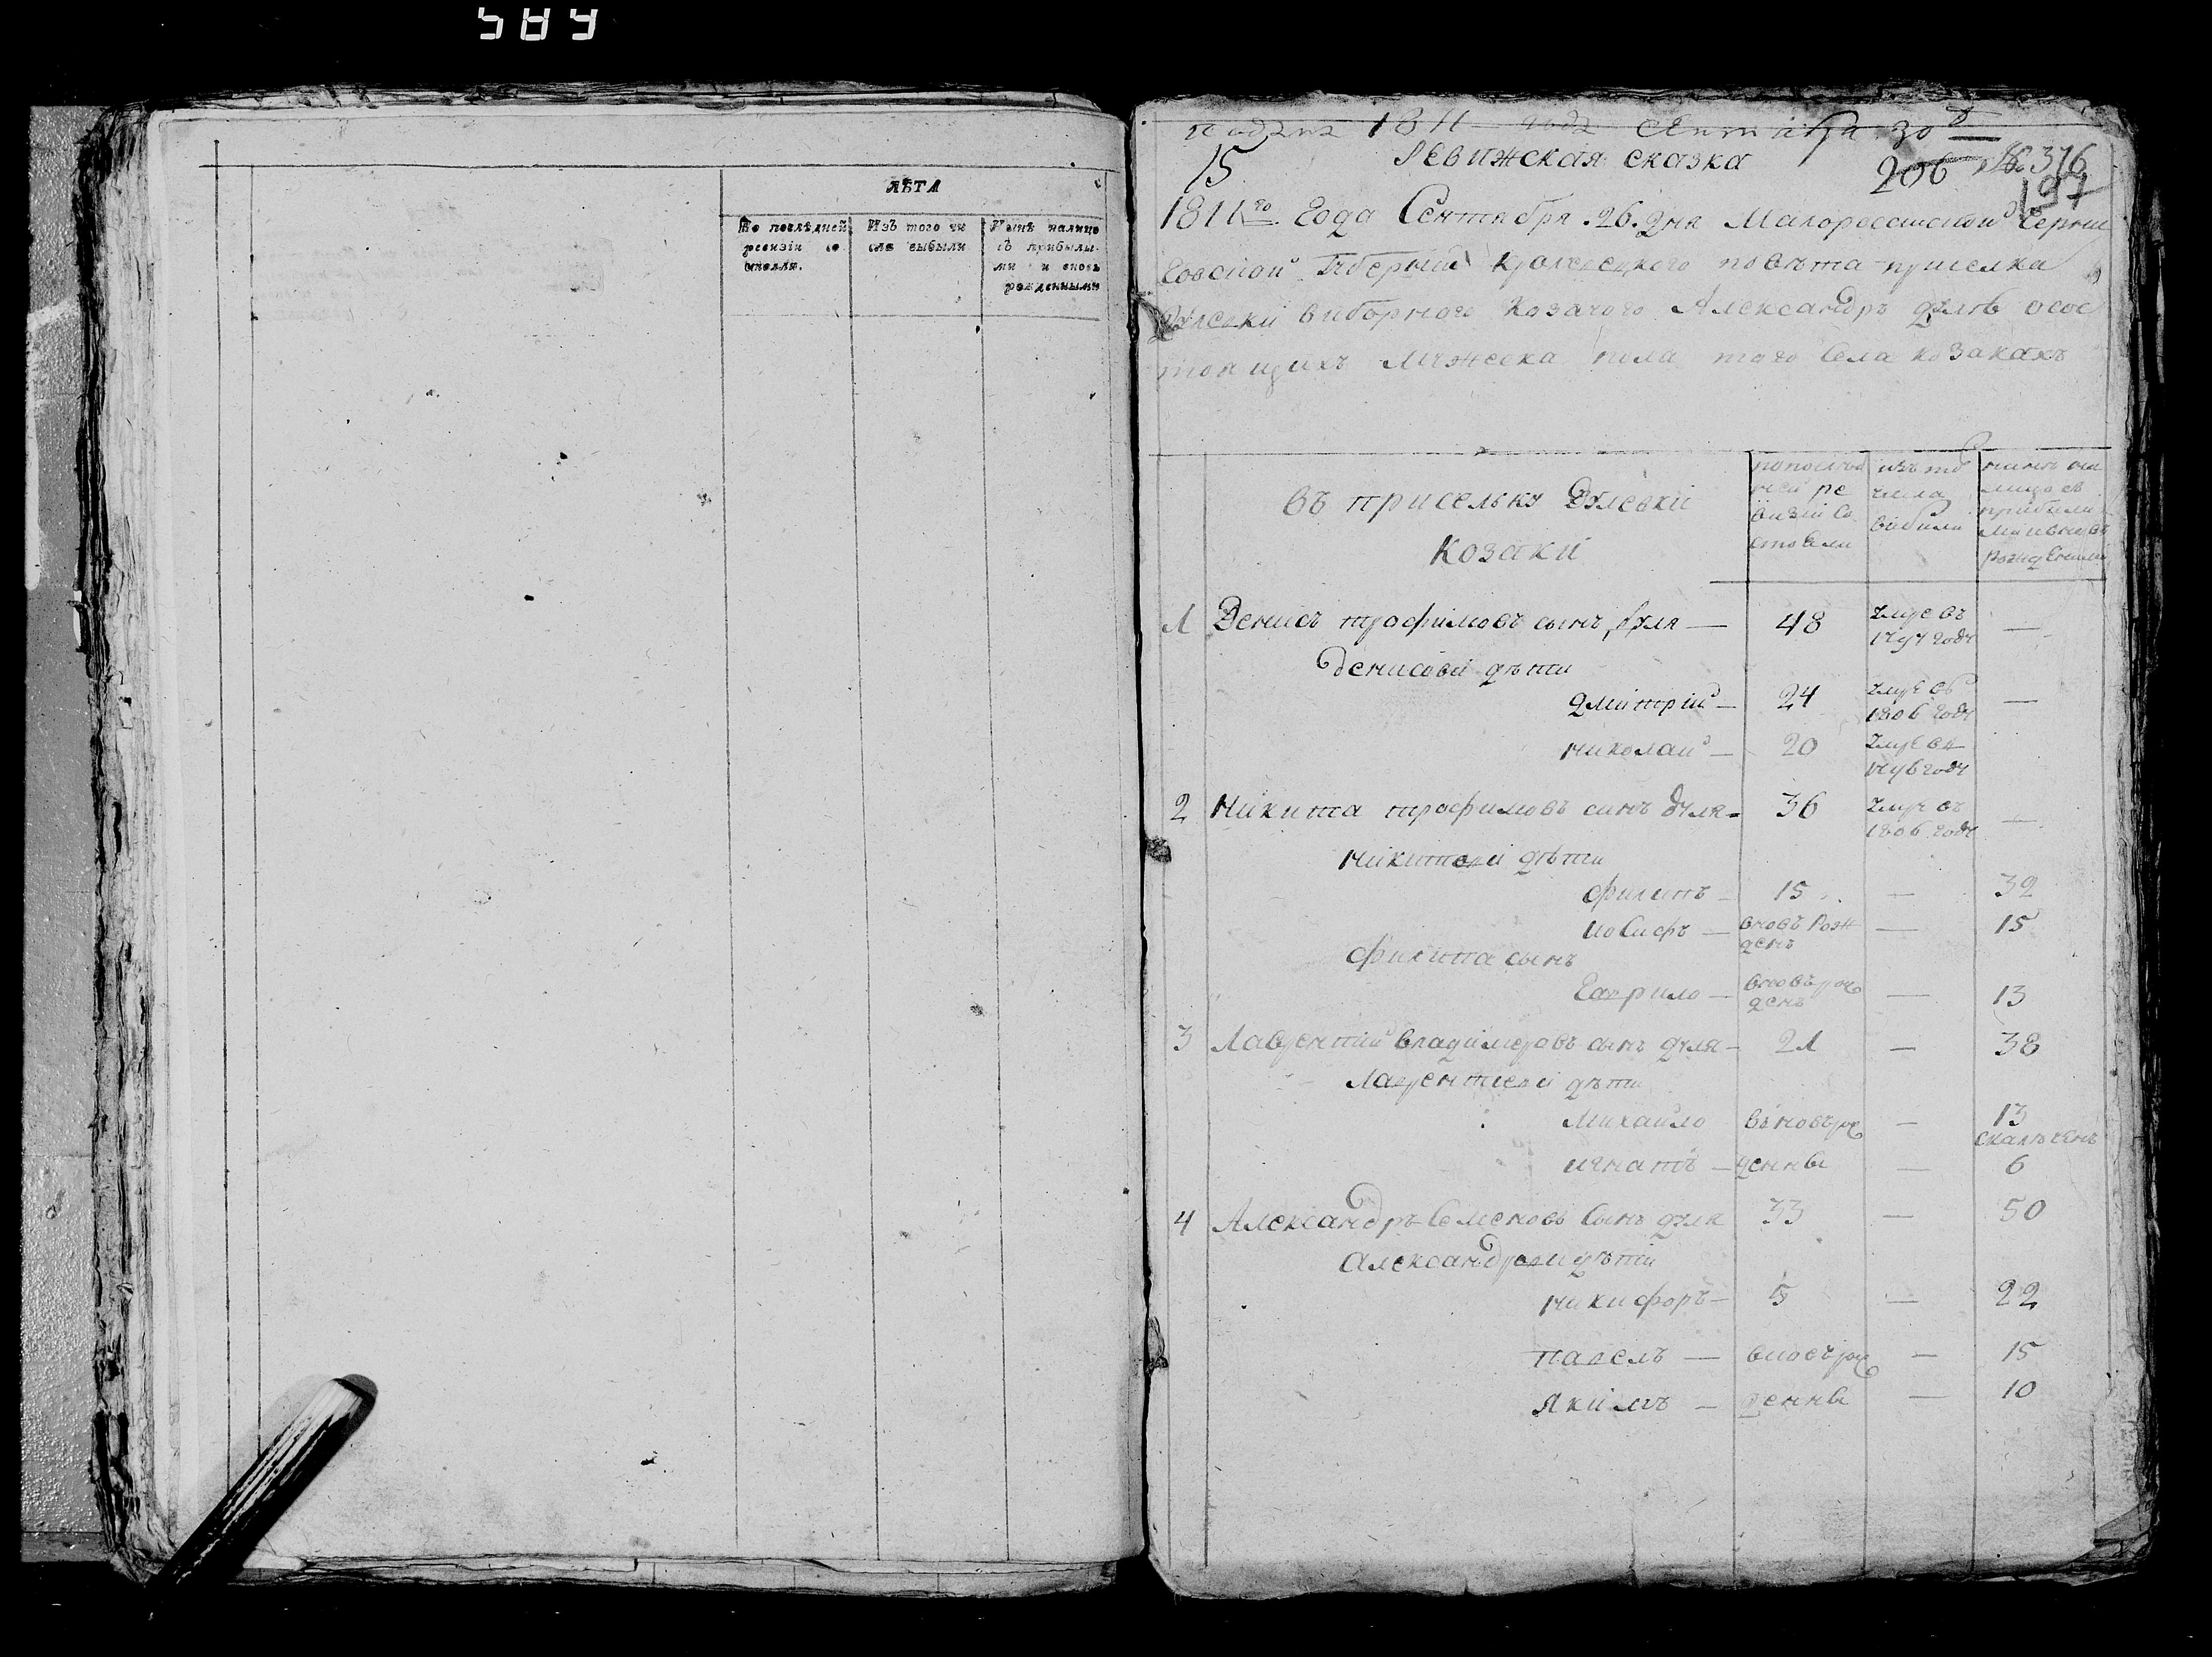 589
ЛѢТА
По послѣдней ревизіи со стояли.
Изъ того чи сла выбыли
Нынѣ налицо съ прибылы- ми и вновь рожденными
подана 1811 года Сентября 30
15 Ревижская сказка 206 № 376
197
1811го Года Сентября 26 дня Малороссииской Черни
говской Губерныи Кролевецкого повѣта приселка
Дулевки виборного Козачого Александръ Дуля о сос
тоящихъ Мужеска пола того Села козакахъ
въ присельку Дулевки
Козаки
по послѣд ней ре визіи со стояли
изъ то числа вибили
нинѣ на лицо съ прибили ми и вновь рожденими
1 Денисъ трофимовъ сынъ Дуля — 48 Умре въ 1797 годѵ —
Денисови дѣти
Дмитрий — 24 Умре въ 1806 годѵ —
николай — 20 Умре въ 1796 годѵ
2 Никита трофимовъ синъ дуля — 36 Умре въ 1806 годѵ —
никитови дѣти
филипъ — 15 — 32
иосифъ — вновъ рож денъ — 15
филипа сынъ
Гаврило — вновъ рож денъ — 13
3 Лаврентий владимеровъ сынъ дуля — 21 — 38
лаврентиеви дѣти
Михайло въновъ рож — 13
скалѣченъ
игнатъ — денны — 6
4 Александръ Семеновъ Сынъ дуля 33 — 50
Александрови дѣти
никифоръ — 5 — 22
павелъ — вновъ рож — 15
Якимъ — денны — 10